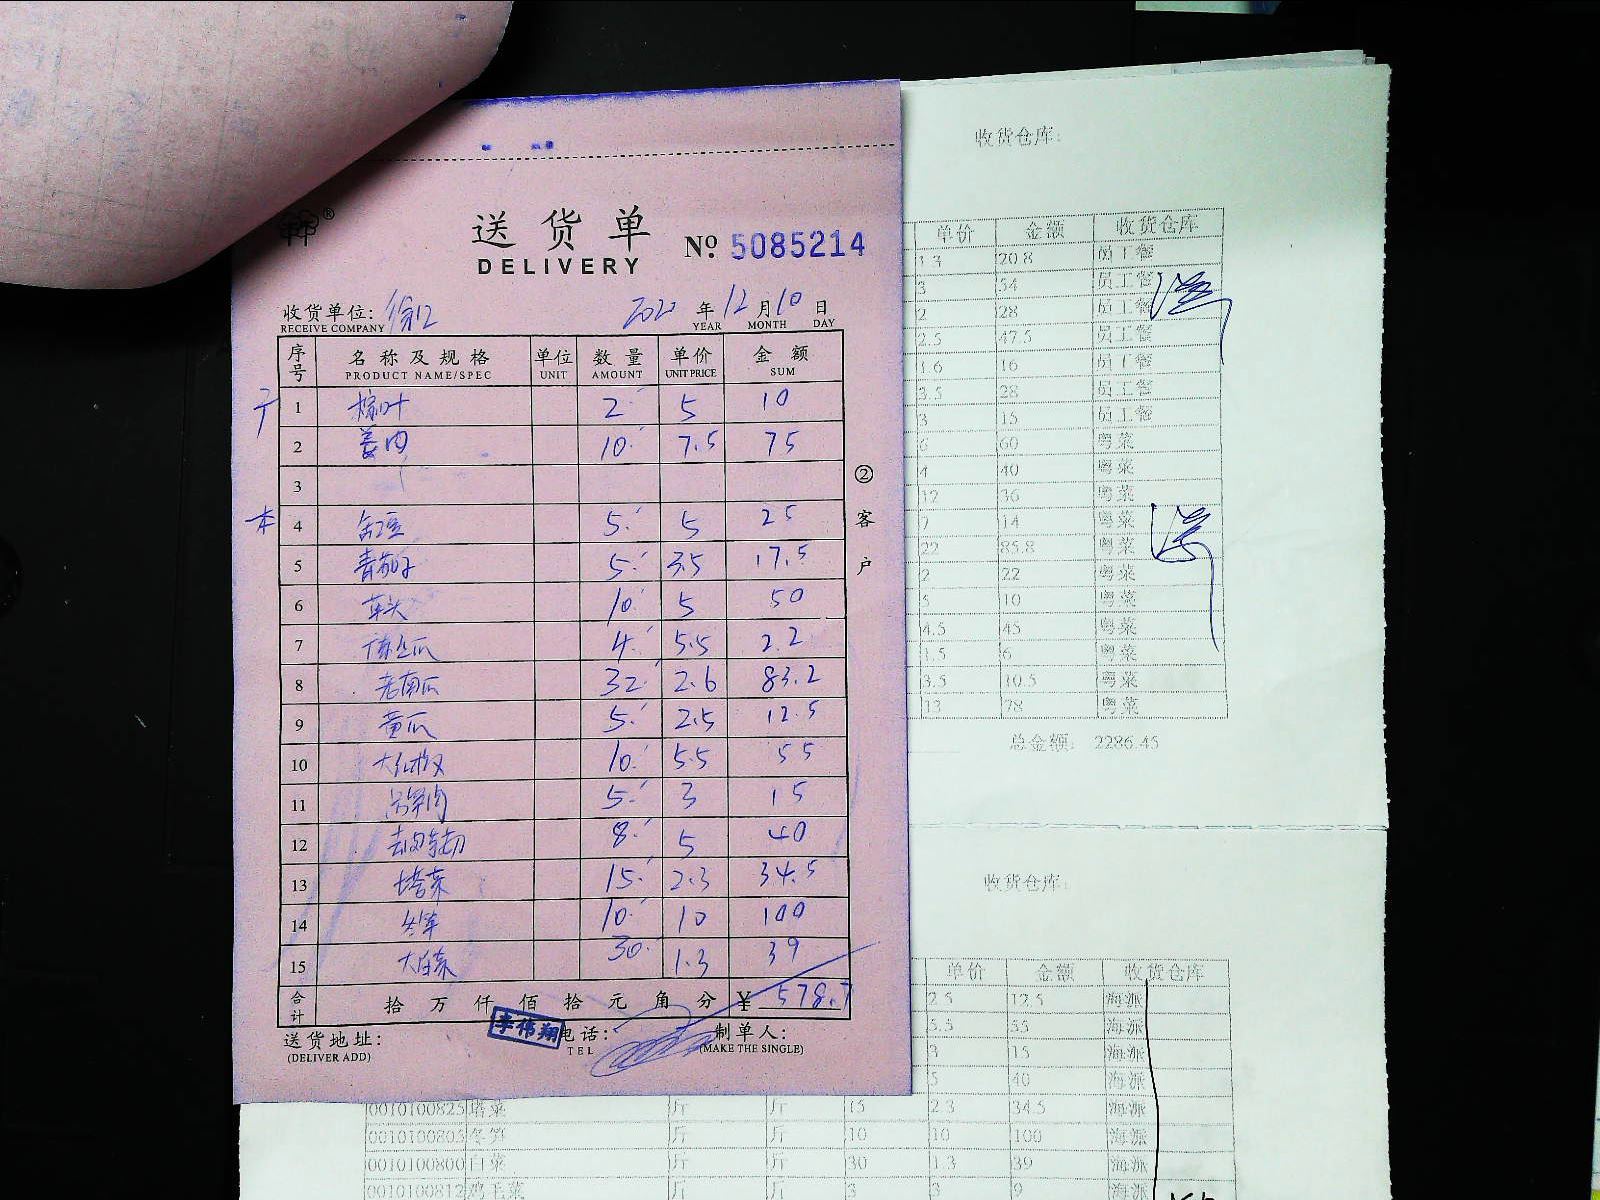 送货单
DELIVERY
No. 5085214
收货单位: 徐汇 2020 年 12 月 10 日
RECEIVE COMPANY YEAR MONTH DAY
序号 名称及规格 单位 数量 单价 金额
PRODUCT NAME/SPEC UNIT AMOUNT UNIT PRICE SUM
1 2 5 10
2 姜肉 10 7.5 75
3
本 4 缸豆 5 5 25
5 青茄子 5 3.5 17.5
6 10 5 50
7 4 5.5 2.2
8 老南瓜 32 2.6 83.2
9 黄瓜 5 2.5 12.5
10 大红椒 10 5.5 55
11 5 3 15
12 8 5 40
13 塔菜 15 2.3 34.5
14 冬笋 10 10 100
15 大白菜 30 1.3 39
合计 拾 万 仟 佰 拾 元 角 分 ¥ 578.7
送货地址: 李伟翔 电话: 制单人:
(DELIVER ADD) TEL (MAKE THE SINGLE)
② 客户
收货仓库:
单价 金额 收货仓库
1.3 20.8 员工餐
3 54 员工餐
2 28 员工餐
2.5 47.5 员工餐
1.6 16 员工餐
3.5 28 员工餐
3 15 员工餐
6 60 粤菜
4 40 粤菜
12 36 粤菜
7 14 粤菜
22 85.8 粤菜
2 22 粤菜
5 10 粤菜
4.5 45 粤菜
1.5 6 粤菜
3.5 10.5 粤菜
13 78 粤菜
总金额: 2286.45
收货仓库:
单价 金额 收货仓库
2.5 12.5 海派
5.5 55 海派
3 15 海派
5 40 海派
0010100825 塔菜 斤 斤 15 2.3 34.5 海派
0010100803 冬笋 斤 斤 10 10 100 海派
0010100800 白菜 斤 斤 30 1.3 39 海派
0010100812 鸡毛菜 斤 斤 3 3 9 海派